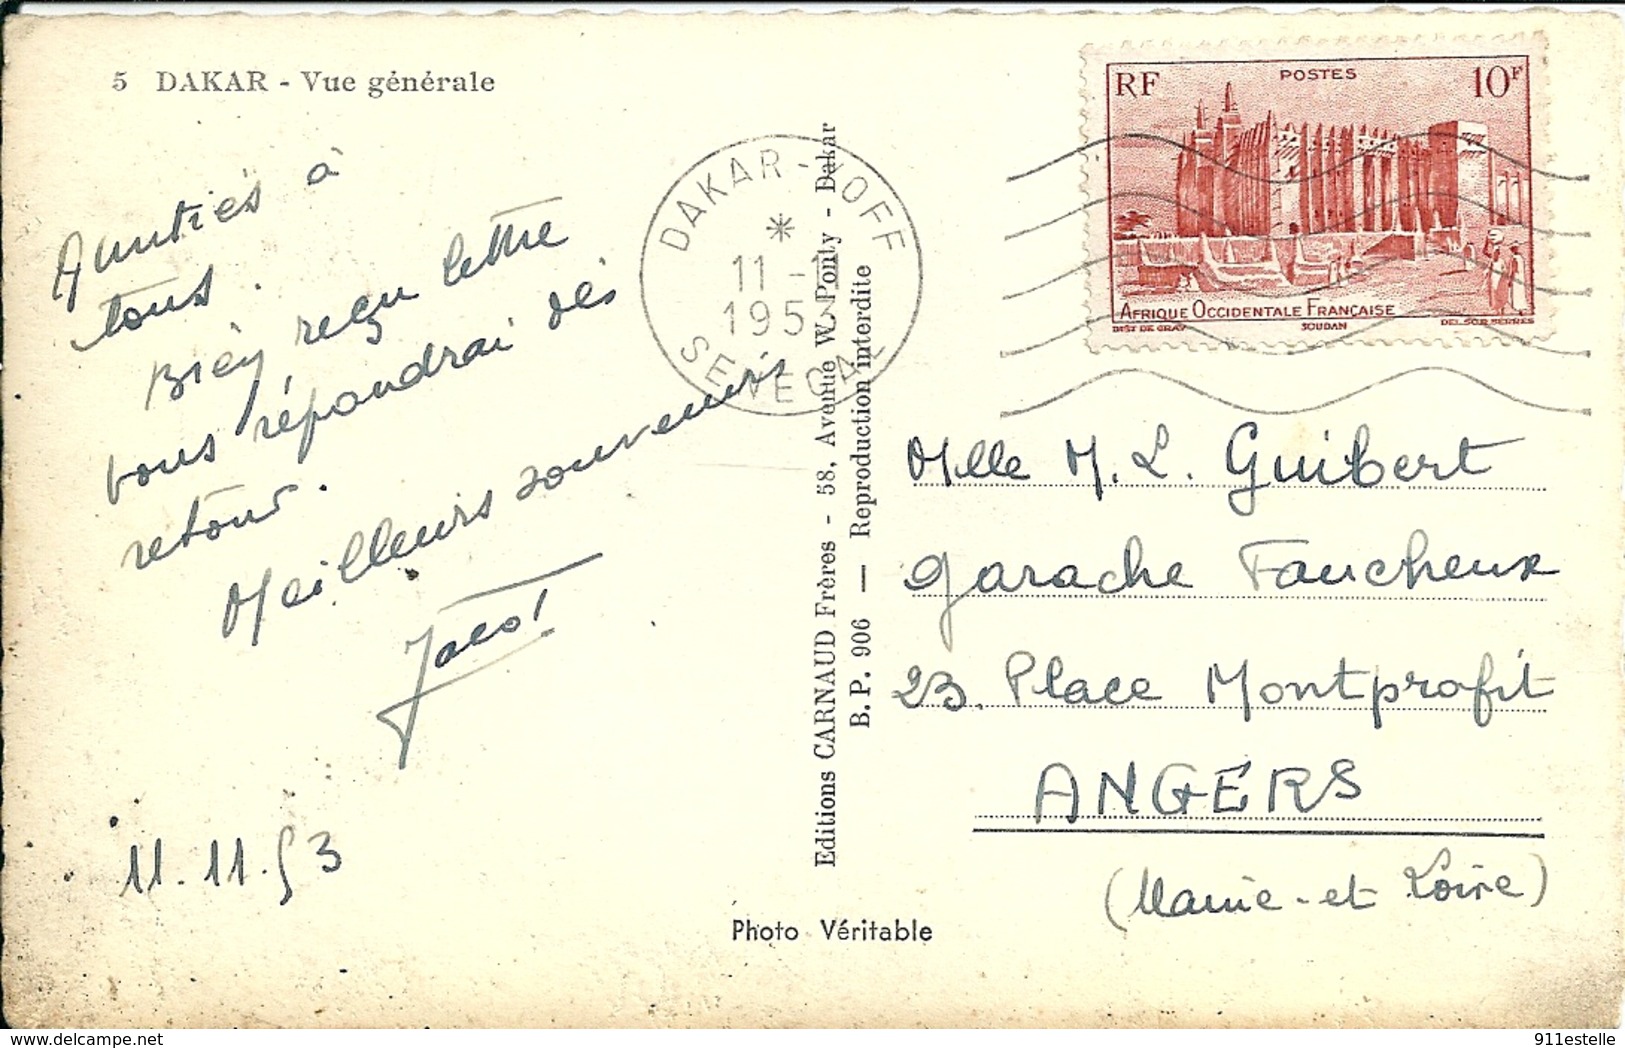 5 DAKAR - Vue générale
Amitiés à
tous.
Bien reçu lettre
vous répondrai dès
retour.
Meilleurs souvenirs
11.11.53
DAKAR-YOFF
11 -1
195
SENEGAL
Editions CARNAUD Frères - 58, Avenue W. Ponty - Dakar
B. P. 906 — Reproduction interdite
Photo Véritable
RF POSTES 10F
AFRIQUE OCCIDENTALE FRANÇAISE
DIST DE GRAY SOUDAN DEL.SC.R SERRES
Mlle M. L. Guibert
garache Faucheux
23. Place Montprofit
ANGERS
(Maine-et Loire)
911estelle